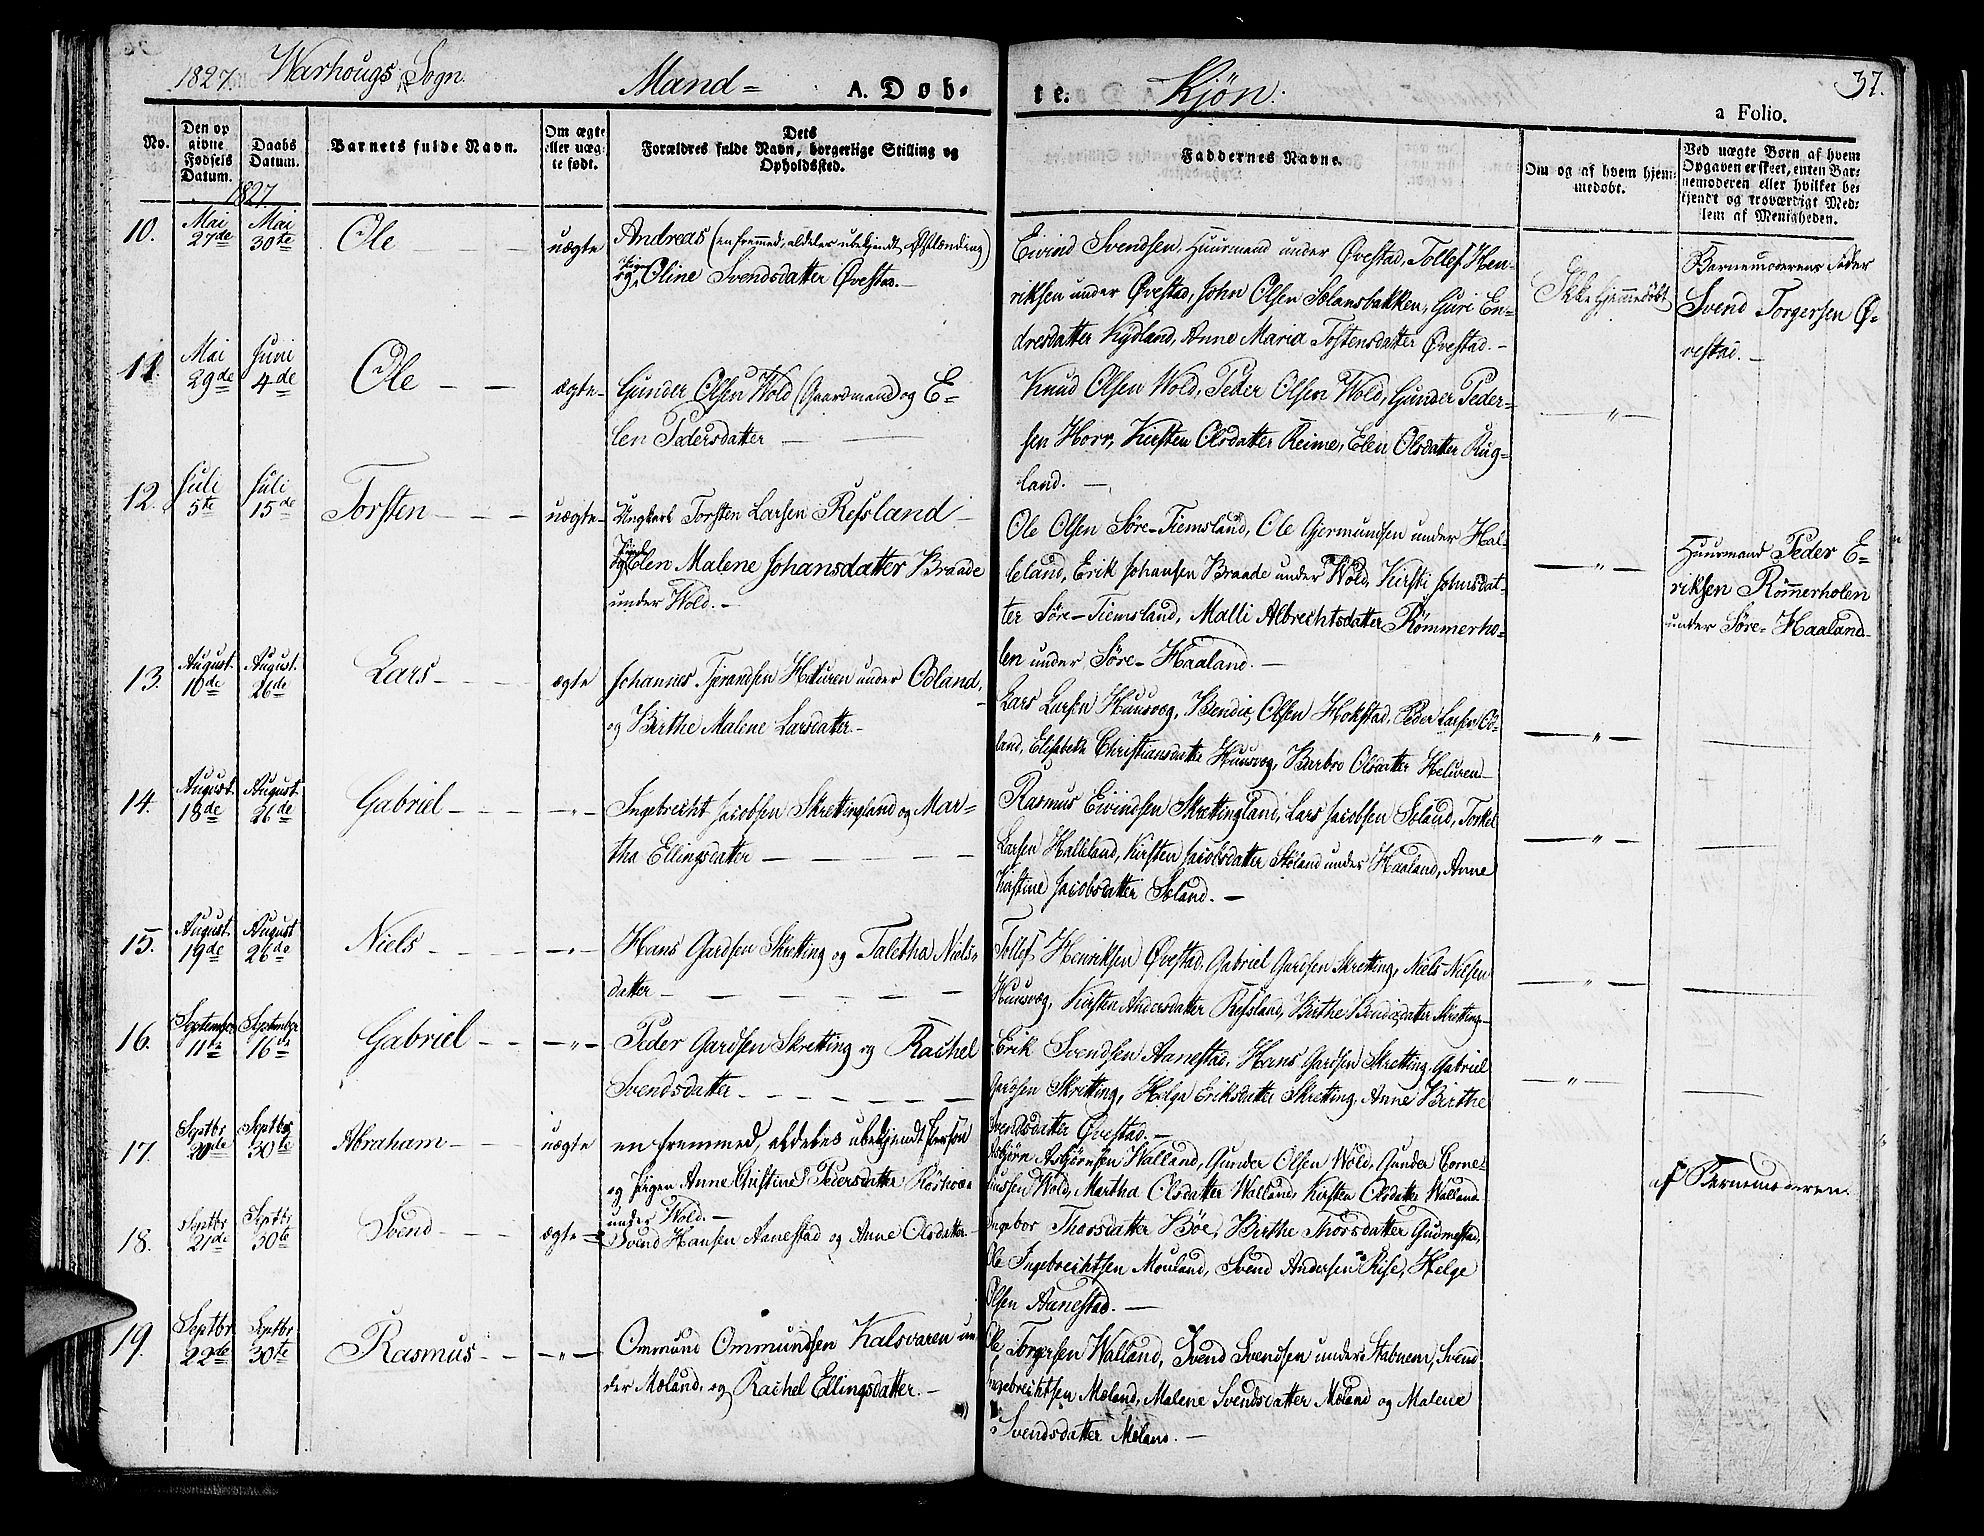 1827. Warhougs Sogn. Mand= A. Døb= te. Kjøn. 37.
a Folio.
No.
Den op
givne
Fødsels
Datum.
Daabs
Datum.
1827.
Barnets fulde Navn.
Om ægte
eller uæg=
te født.
Dets
Forældres fulde Navn, borgerlige Stilling og
Opholdssted.
Faddernes Navne.
Om og af hvem hjem=
medøbt.
Ved uægte Børn af hvem
Opgaven er skeet, enten Bar=
nemoderen eller hvilket be=
kjendt og troværdigt Med=
lem af Menigheden.
10. Mai 27de Mai 30te Ole uægte
Andreas (en fremmed, aldeles ubekjendt Østlænding)
og Pigen Oline Svendsdatter Øvestad.
Eivind Svendsen Huurmand under Øvestad, Tollef Hen=
riksen under Øvestad, John Olsen Solansbakken, Guri En=
dresdatter Kydland, Anne Maria Tostensdatter Øvestad.
Ikke hjemmedøbt
Barnemoderens Fader
Svend Torgersen Ø=
vestad.
11. Mai 29de Juni 4de Ole ægte
Gunder Olsen Wold (Gaardmand) og E=
len Pedersdatter
Knud Olsen Wold, Peder Olsen Wold, Gunder Peder=
sen Horr, Kirsten Olsdatter Reime, Elen Olsdatter Rug=
land.
12. Juli 5te Juli 15de Torsten uægte
Ungkarl Torsten Larsen Refsland
og Pigen Elen Malene Johansdatter Braade
under Wold.
Ole Olsen Søre-Tiemsland, Ole Gjermundsen under Hal=
leland, Erik Johansen Braade under Wold, Kirsti Johnsdat=
ter Søre-Tiemsland, Malli Albrechtsdatter Rømmerho=
len under Søre-Haaland.
Huurmand Peder E=
riksen Rømmerholen
under Søre-Haaland
13. August. 10de August. 26de Lars ægte
Johannes Tjerandsen Heluren under Odland,
og Birthe Malene Larsdatter
Lars Larsen Huusvæg, Bendix Olsen Hokstad, Peder Larsen Od=
land, Elisabeth Christiansdatter Huusvæg, Barbro Olsdatter Heluren
14. August. 18de August. 26de Gabriel
Ingebrecht Jacobsen Skrettingland og Mar=
tha Ellingsdatter
Rasmus Eivindsen Skrettingland, Lars Jacobsen Soland, Torkel
Larsen Halleland, Kirsten Jacobsdatter Støland under Haaland, Anne
Kirstine Jacobsdatter Soland.
15. August. 19de August 26de Niels
Hans Gardsen Skretting og Taletha Niels=
datter
Tollef Henriksen Øvestad, Gabriel Gardsen Skretting, Niels Nilsen
Huusvæg, Kirsten Andersdatter Refsland, Birthe Bendixdatter Skretting
16. September 11te September 16de Gabriel
Peder Gardsen Skretting og Rachel
Svendsdatter
Erik Svendsen Aanestad, Hans Gardsen Skretting, Gabriel
Gardsen Skretting, Helga Eriksdatter Skretting, Anne Birthe
Svendsdatter Øvestad.
17. Septbr 20de Septbr 30te Abraham uægte
en fremmed, aldeles ubekjendt Person
og Pigen Anne Christine Pedersdatter
under Wold.
Asbjørn Asbjørnsen Walland, Gunder Olsen Wold, Gunder Corne=
liussen Wold, Martha Olsdatter Walland, Kirsten Olsdatter Walland
af Barnemoderen.
18. Septbr 21de Septbr 30te Svend ægte
Svend Hansen Aanestad og Anne Olsdatter
Ingebor Thorsdatter Bøe, Birthe Thorsdatter Gudmestad,
Ole Ingebrechtsen Mouland, Svend Andersen Rise, Helge
Olsen Aanestad.
19. Septbr 22de Septbr 30te Rasmus
Ommund Ommundsen Kalsvaren un=
der Moland, og Rachel Ellingsdatter.
Ole Torgersen Walland, Svend Svendsen under Stabnem, Svend
Ingebrechtsen Moland, Malene Svendsdatter Moland og Malene
Svendsdatter Moland.